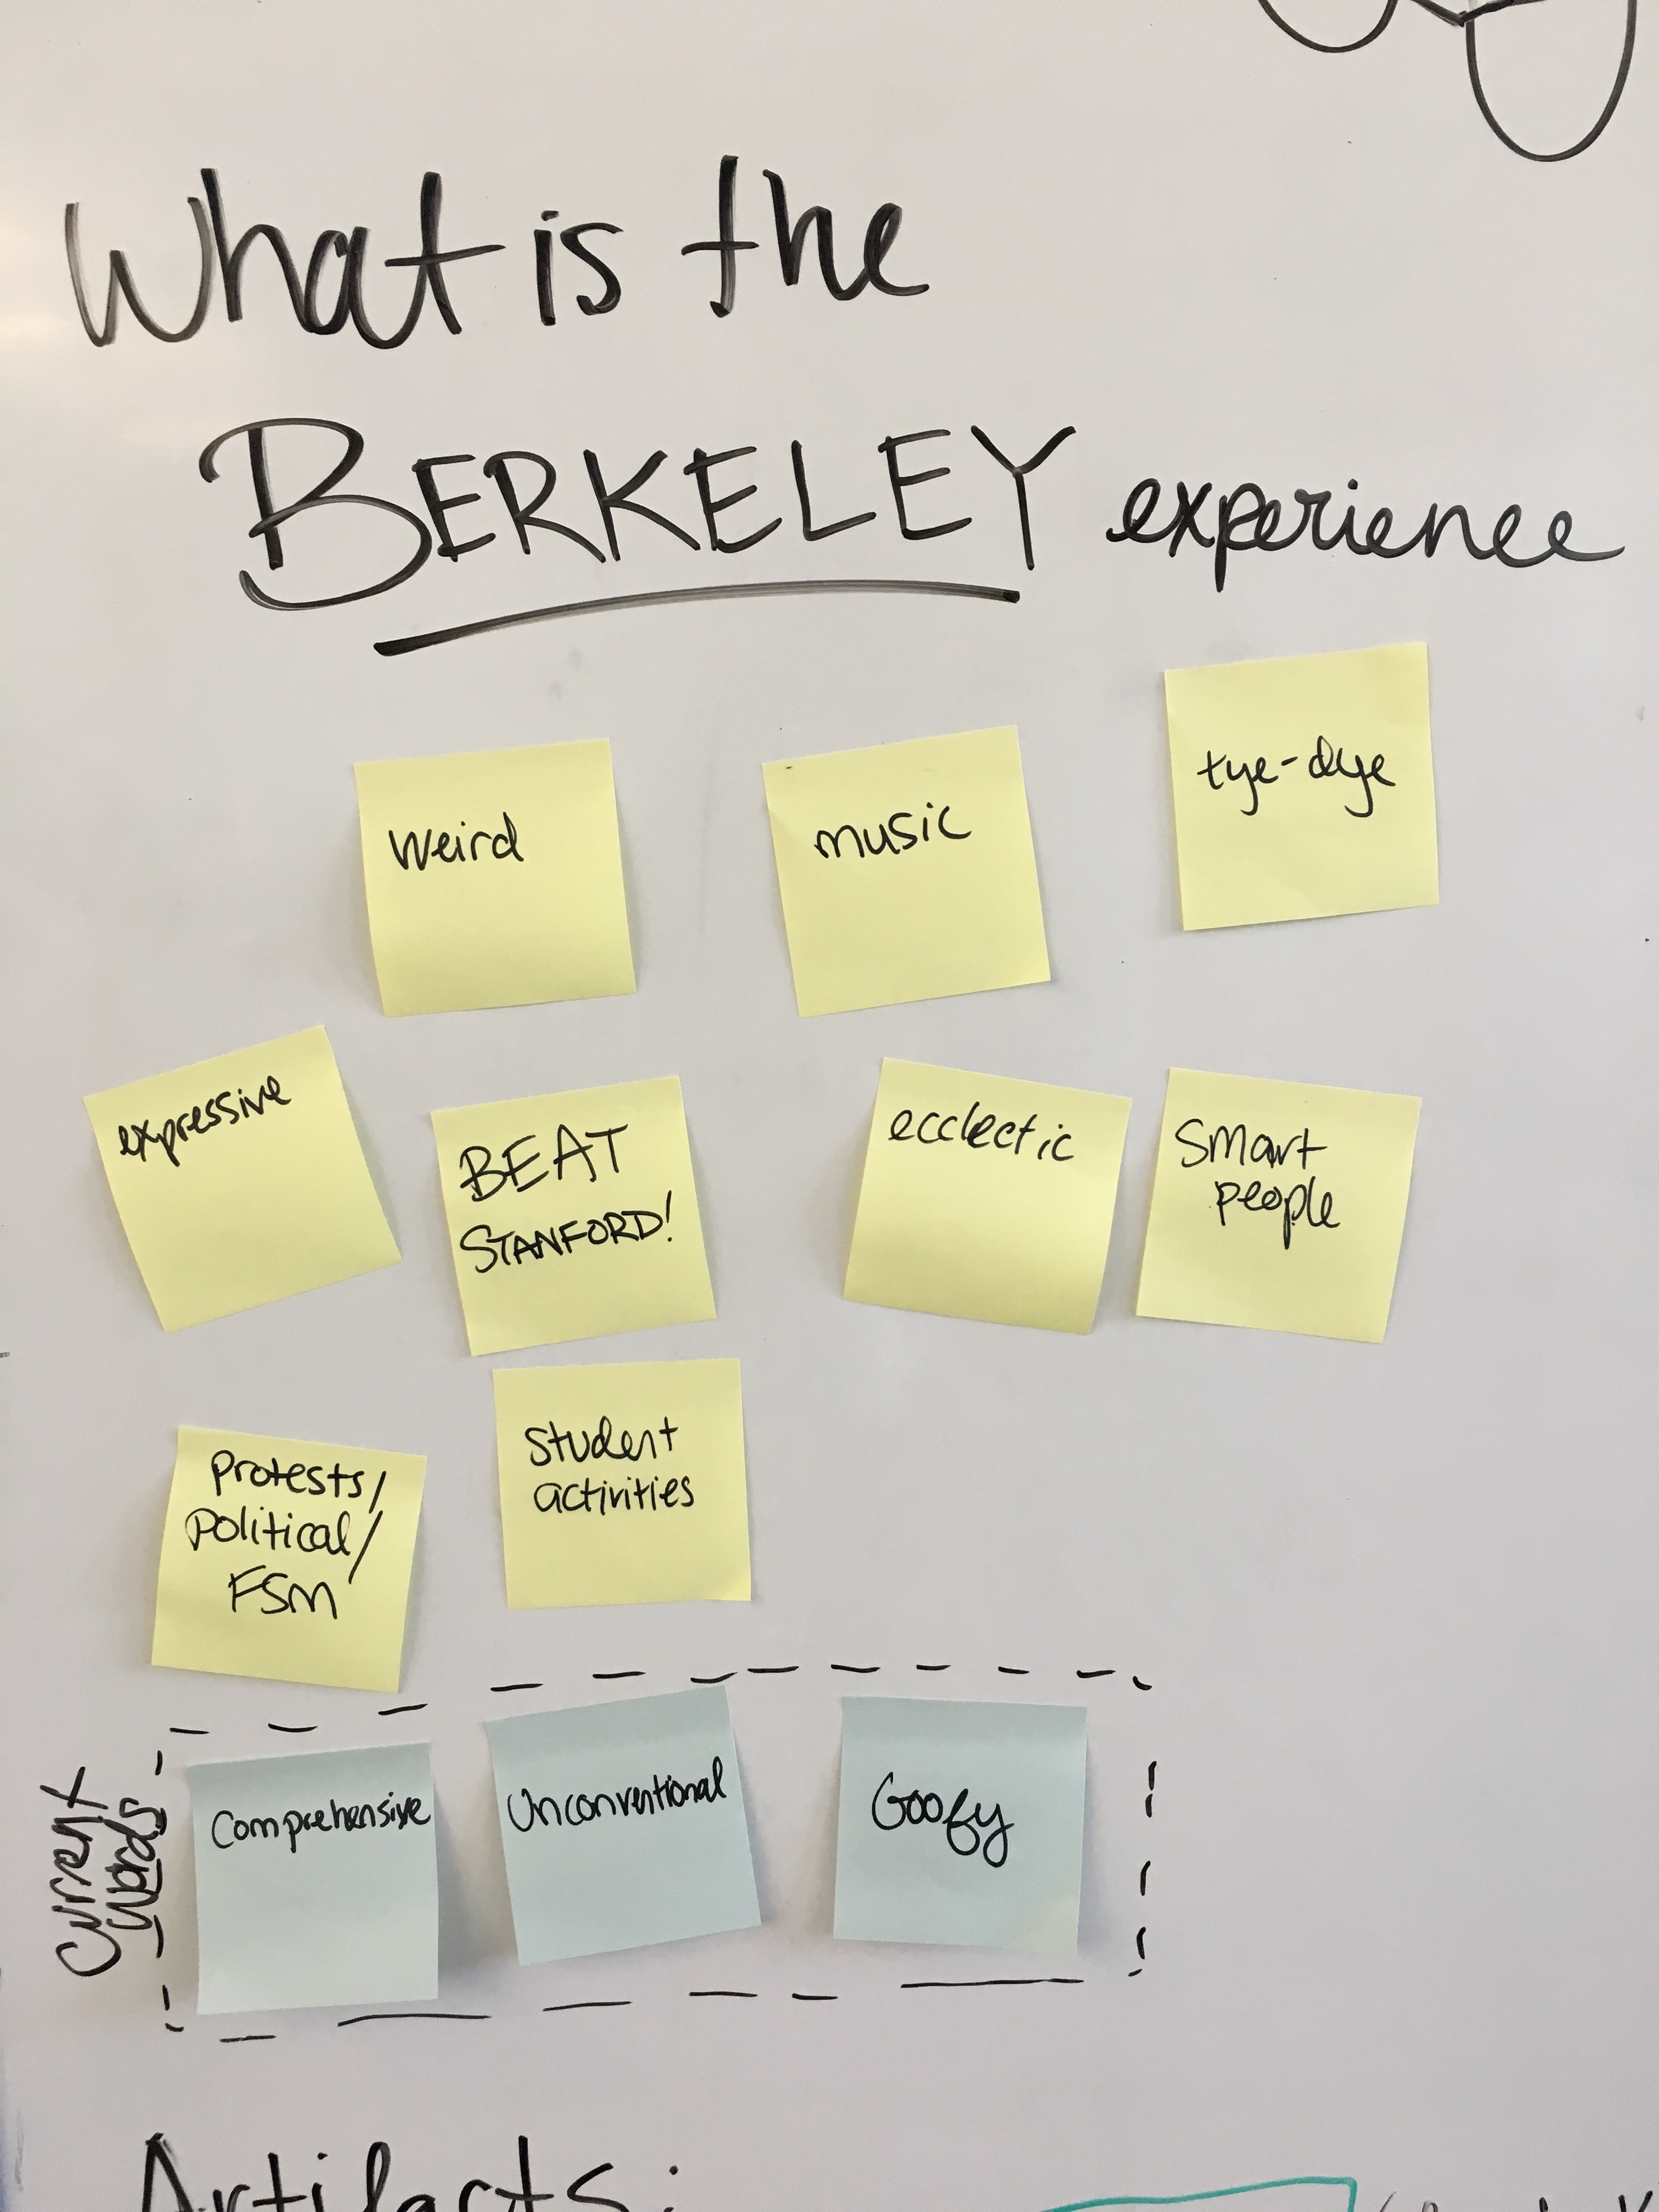 What is the
BERKELEY experience
weird
music
tye-dye
expressive
BEAT
STANFORD!
ecclectic
Smart
people
Protests/
Political/
FSM
Student
activities
Current
Words
Comprehensive
Unconventional
Goofy
Artifacts: